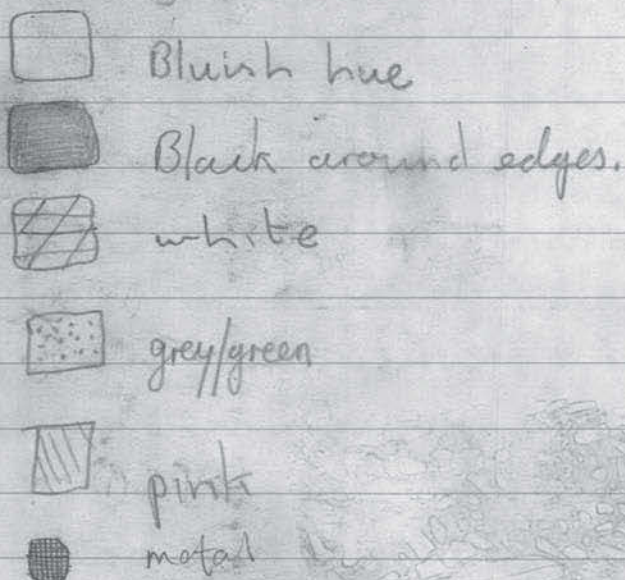 Bluish hue
Black around edges.
white
grey/green
pink
metal